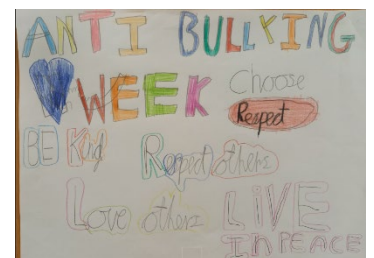 ANTI BULLYING
WEEK
Choose
Respect
BE Kind
Respect others
Love others
LIVE
IN PEACE